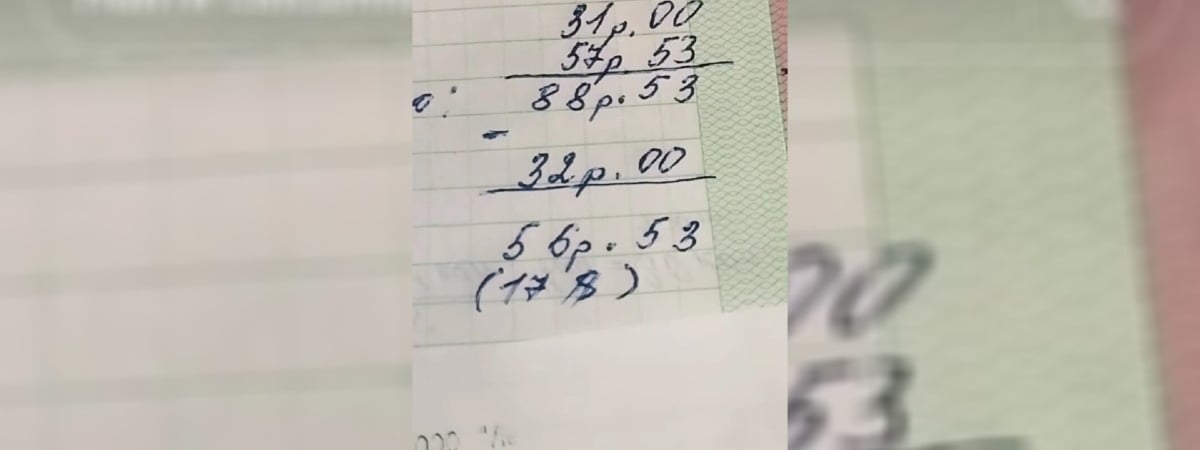 31р.00
57р.53
о: 88р.53
-
32р.00
56р.53
(17 $)
000